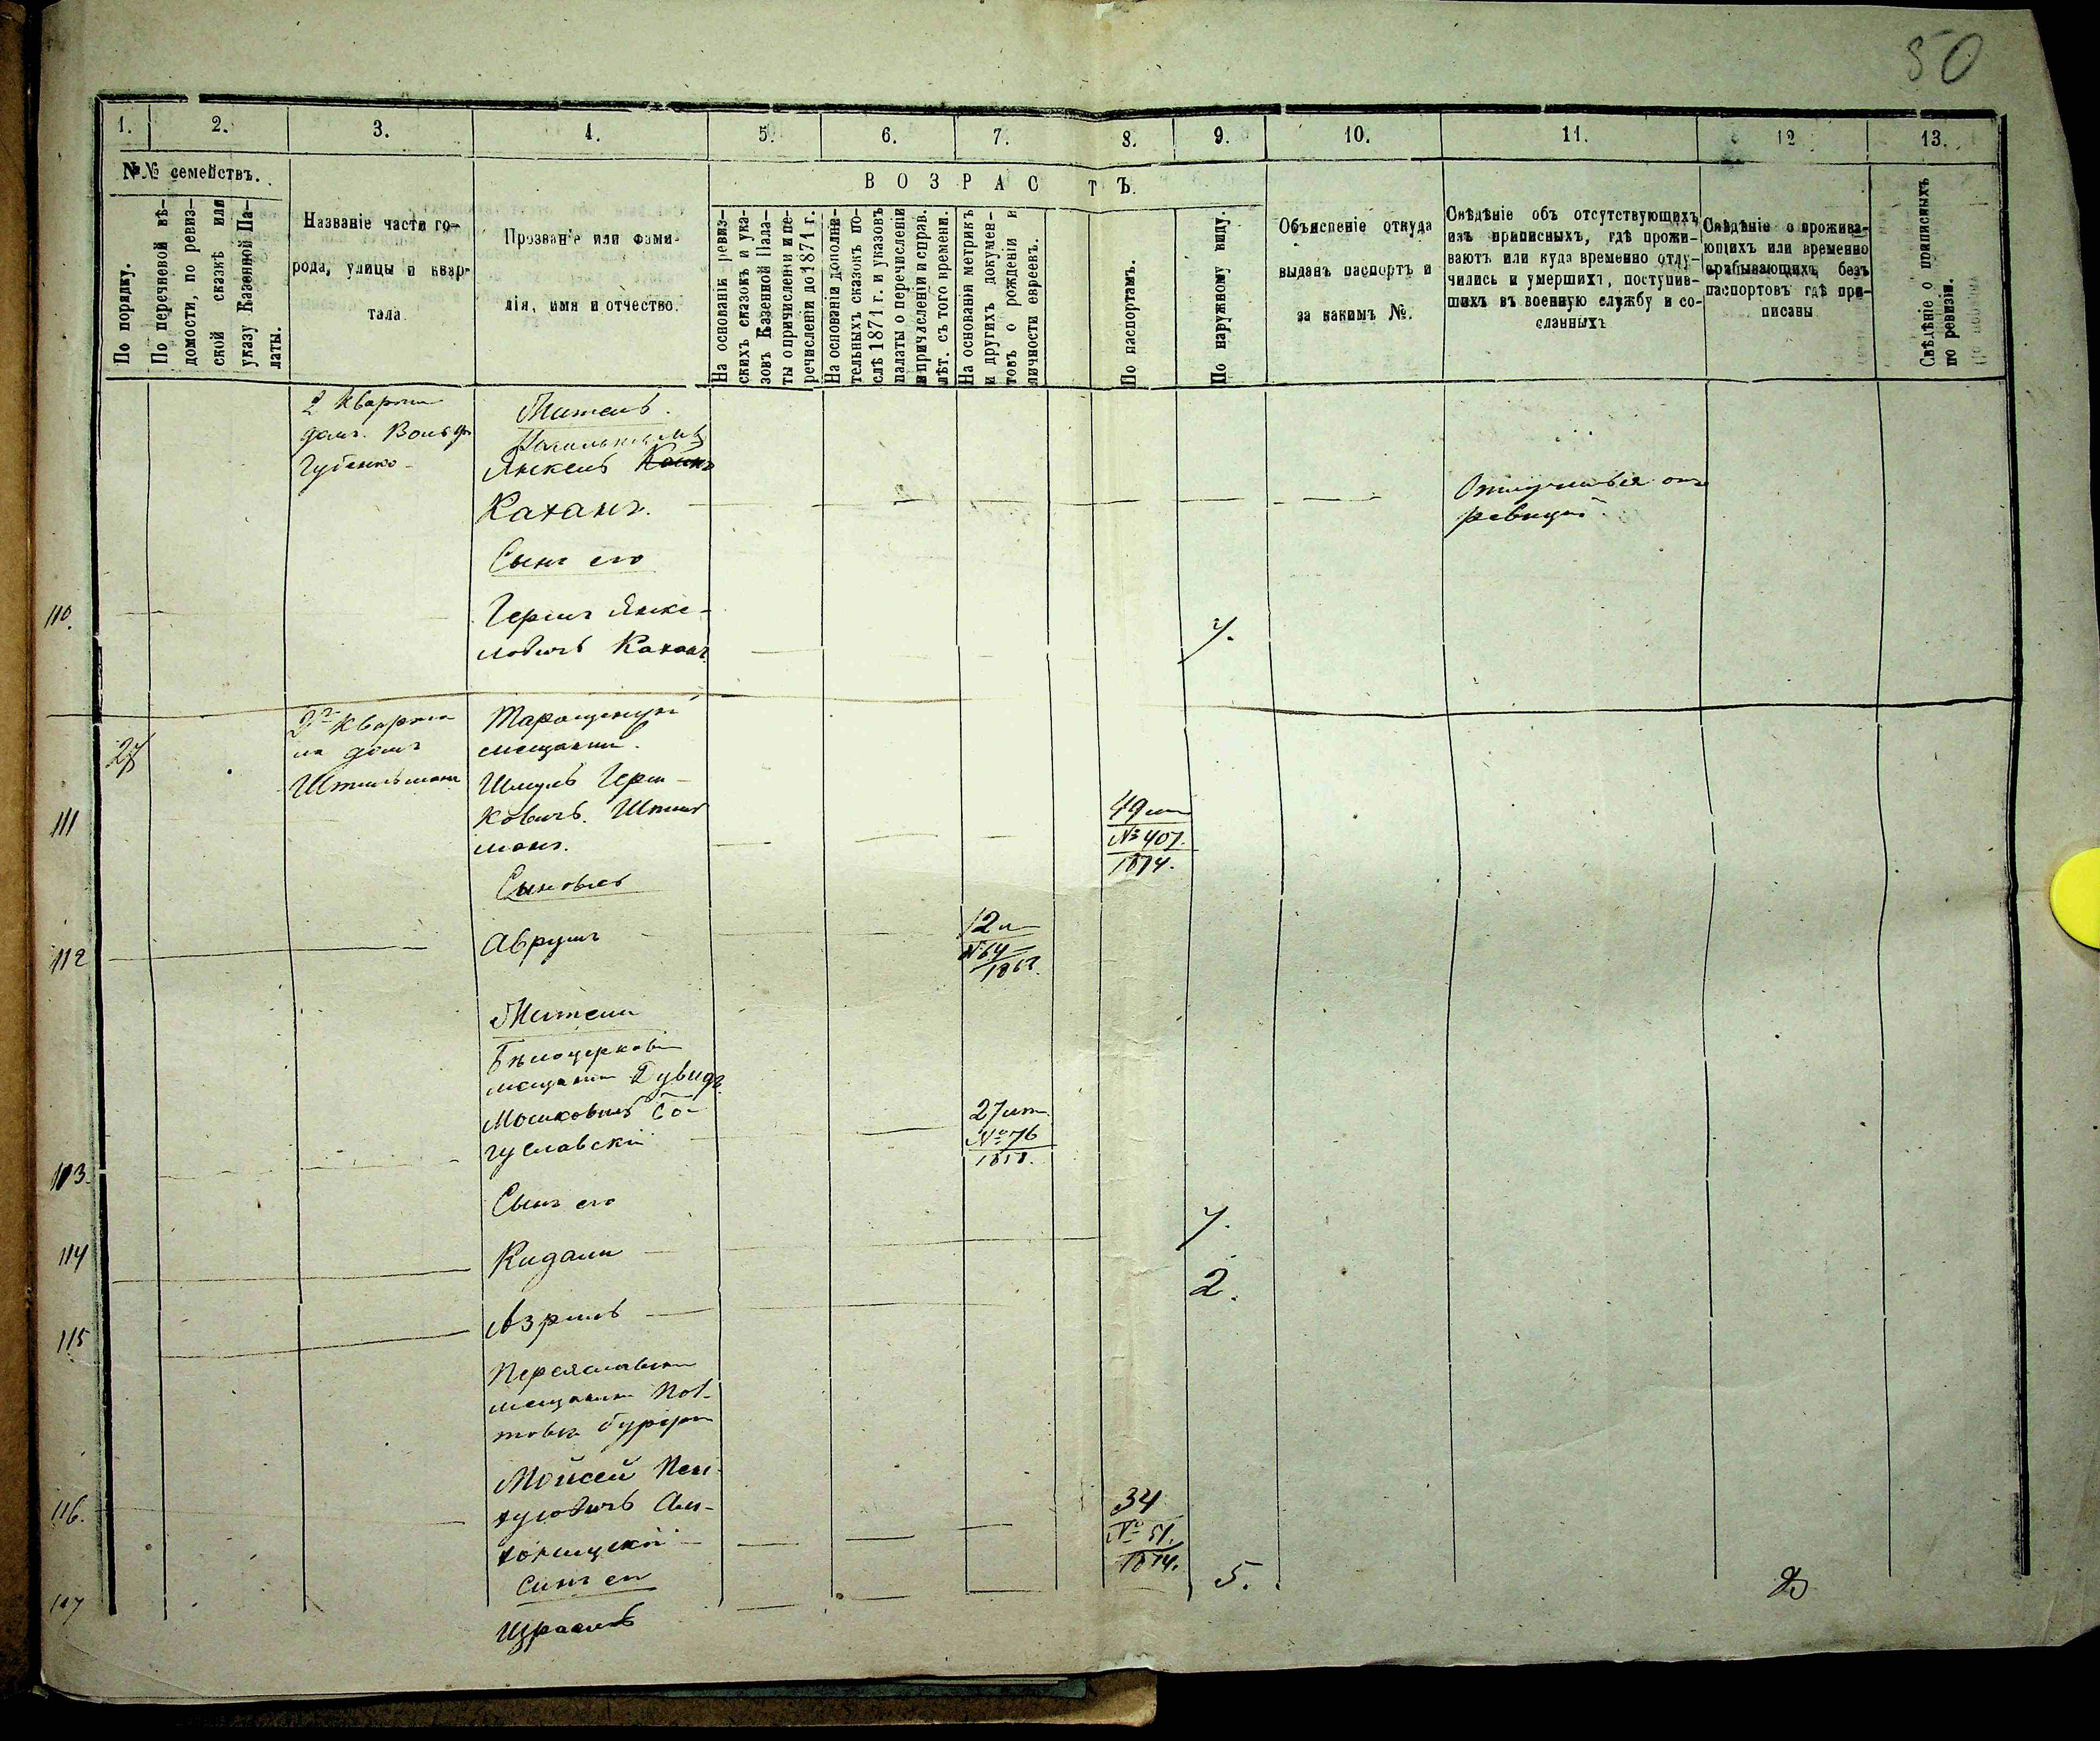 50
1. 2. 3. 4. 5. 6. 7. 8. 9. 10. 11. 12 13.
№№ семействъ.
ВОЗРАСТЪ.
По порядку.
По перечневой вѣ-
домости, по ревиз-
ской сказкѣ или
указу Казенной Па-
латы.
Названіе части го-
рода, улицы и квар-
тала.
Прозваніе или фами-
лія, имя и отчество.
На основаніи ревиз-
скихъ сказокъ и ука-
зовъ Казенной Пала-
ты о причисленіи и пе-
речисленіи до 1871 г.
На основаніи дополни-
тельныхъ сказокъ по-
слѣ 1871 г. и указовъ
палаты о перечисленіи
и причисленіи и справ.
лѣт. съ того времени.
На основаніи метрикъ
и другихъ докумен-
товъ о рожденіи и
личности евреевъ.
По паспортамъ.
По наружному виду.
Объясненіе откуда
выданъ паспортъ и
за какимъ №.
Свѣдѣніе объ отсутствующихъ
изъ приписныхъ, гдѣ прожи-
ваютъ или куда временно отлу-
чились и умершихъ, поступив-
шихъ въ военную службу и со-
сланныхъ
Свѣдѣніе о прожива-
ющихъ или временно
прибывающихъ безъ
паспортовъ гдѣ при-
писаны
Свѣдѣніе о приписныхъ
по ревизіи.
2 Кварт
домъ
Губенко
Житель
Янкель
Каханъ.
Сынъ его
110.
Гершъ Янке-
лювичъ Каханъ
7.
27
2й Кварта
ла домъ
Штильмана
Таращанскій
мещанин.
Шмуль Герш
ковичъ. Штиль
манъ.
111
49 лѣт
№ 407.
1874.
Сыновья
112
Аврумъ
12 л
№ 64
Жители
Бѣлоцерков
мещанин Дувидъ
Мошковичъ Бо-
гуславскій
113.
27 лѣт.
№ 76
1858.
Сынъ его
7.
114
2.
115
Азриль
Переяславскій
мещанин
Мойсей
116.
34
№ 51.
1874.
Сынъ его
5.
117
Израиль